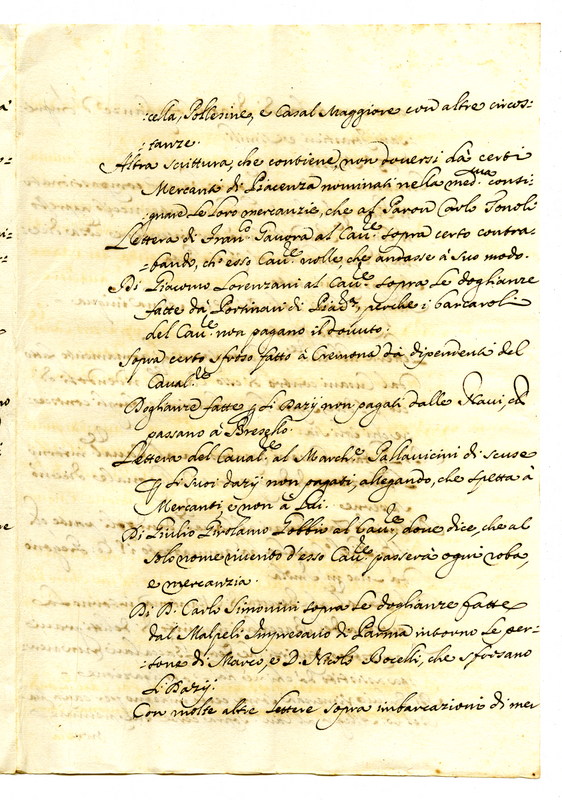 :cella, Pollesine, e Casal Maggiore con altre circos-
:tanze.
Altra scrittura, che contiene, non doversi dà certi
Mercanti di Piacenza nominati nella med.ma consi-
:gnare le loro mercanzie, che al Paron Carlo Tonoli
Lettera di Fran.co Gaugra al Cau.re sopra certo contra-
:bando, ch'esso Cau.re volle, che andasse à suo modo.
Di Giacomo Lorenzani al Cau.re sopra le doglianze
fatte dà Portinari di Piac.za, perche i barcaroli
del Cau.re non pagano il douuto:
Sopra certo sfroso fatto à Cremona dà dipendenti del
Caual.re
Doglianze fatte p li Dazij non pagati dalle Naui, ch
passano à Bresello.
Lettera del Caual.re al March.e Pallauicini di scuse
p li suoi dazij non pagati, allegando, che spetta à
Mercanti, e non à lui.
Di Giulio Girolamo Gobbio al Cau.re, doue dice, che al
solo nome riuerito d'esso Cau.re passerà ogni roba,
e mercanzia.
Di D. Carlo Simonini sopra le doglianze fatte
dal Malpeli Impresario di Parma intorno le per-
:sone di Marco, e D. Nicolò Bocelli, che sforsano
li Dazij.
Con molte altre lettere sopra imbarcazioni di mer